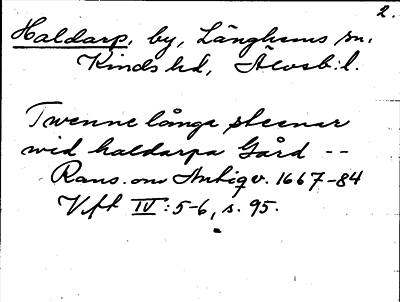 2.
Haldarp, by, Länghems sn.
Kinds hd, Älvsb: l.
Twenne långe steenar
wid haldarpa Gård --
Rans. om Antiqv. 1667-84
Vft IV: 5-6, s. 95.